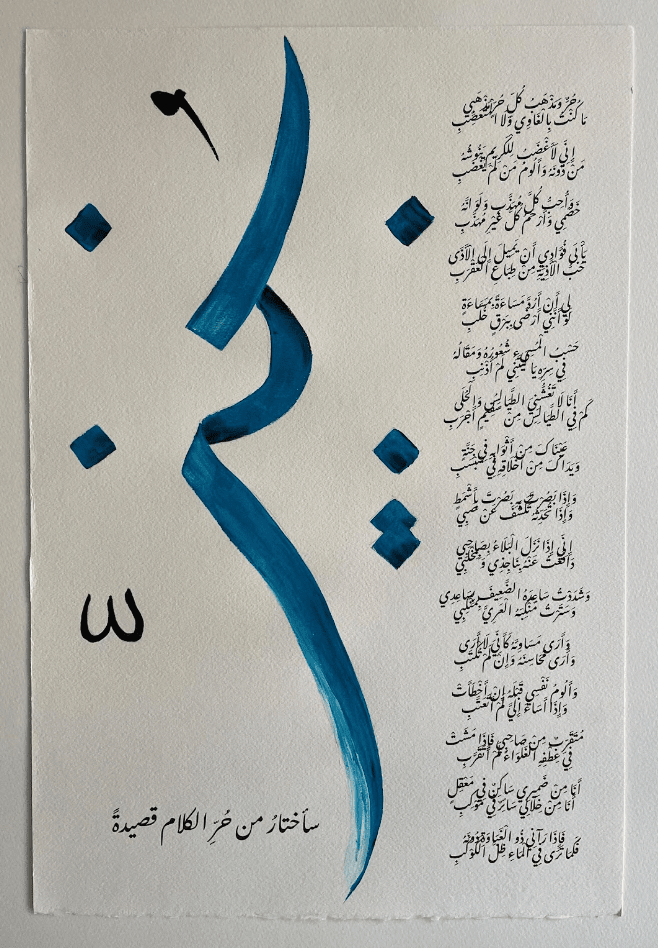 حُرٌّ وَمَذْهَبُ كُلِّ حُرٍّ مَذْهَبِي
مَا كُنْتُ بِالْغَاوِي وَلَا الْمُتَعَصِّبِ
إِنِّي لَأَغْضَبُ لِلْكَرِيمِ يَنُوشُهُ
مَنْ دُونَهُ وَأَلُومُ مَنْ لَمْ يَغْضَبِ
وَأُحِبُّ كُلَّ مُهَذَّبٍ وَلَوَ انَّهُ
خَصْمِي وَأَرْحَمُ كُلَّ غَيْرِ مُهَذَّبِ
يَأْبَى فُؤَادِي أَنْ يَمِيلَ إِلَى الْأَذَى
حُبُّ الْأَذِيَّةِ مِنْ طِبَاعِ الْعَقْرَبِ
لِي أَنْ أَرُدَّ مَسَاءَةً بِمَسَاءَةٍ
لَوْ أَنَّنِي أَرْضَى بِبَرْقٍ خُلَّبِ
حَسْبُ الْمُسِيءِ شُعُورُهُ وَمَقَالُهُ
فِي سِرِّهِ يَا لَيْتَنِي لَمْ أُذْنِبِ
أَنَا لَا تَغُشُّنِي الطَّيَالِسُ وَالْحُلَى
كَمْ فِي الطَّيَالِسِ مِنْ سَقِيمٍ أَجْرَبِ
عَيْنَاكَ مِنْ أَثْوَابِهِ فِي جَنَّةٍ
وَيَدَاكَ مِنْ أَخْلَاقِهِ فِي سَبْسَبِ
وَإِذَا بَصُرْتَ بِهِ بَصُرْتَ بِأَشْمَطٍ
وَإِذَا تُحَدِّثُهُ تَكَشَّفَ عَنْ صَبِي
إِنِّي إِذَا نَزَلَ الْبَلَاءُ بِصَاحِبِي
دَافَعْتُ عَنْهُ بِنَاجِذِي وَبِمِخْلَبِي
وَشَدَدْتُ سَاعِدَهُ الضَّعِيفَ بِسَاعِدِي
وَسَتَرْتُ مَنْكِبَهُ الْعَرِيَّ بِمَنْكِبِي
وَأَرَى مَسَاوِئَهُ كَأَنِّيَ لَا أَرَى
وَأَرَى مَحَاسِنَهُ وَإِنْ لَمْ تُكْتَبِ
وَأَلُومُ نَفْسِي قَبْلَهُ إِنْ أَخْطَأَتْ
وَإِذَا أَسَاءَ إِلَيَّ لَمْ أَتَعَتَّبِ
مُتَقَرِّبٌ مِنْ صَاحِبِي فَإِذَا مَشَتْ
فِي عِطْفِهِ الْغُلَوَاءُ لَمْ أَتَقَرَّبِ
أَنَا مِنْ ضَمِيرِي سَاكِنٌ فِي مَعْقِلٍ
أَنَا مِنْ خِلَالِي سَائِرٌ فِي مَوْكِبِ
فَإِذَا رَآنِي ذُو الْغَبَاوَةِ دُونَهُ
فَكَمَا تَرَى فِي الْمَاءِ ظِلَّ الْكَوْكَبِ
سأختارُ من حُرِّ الكلام قصيدةً